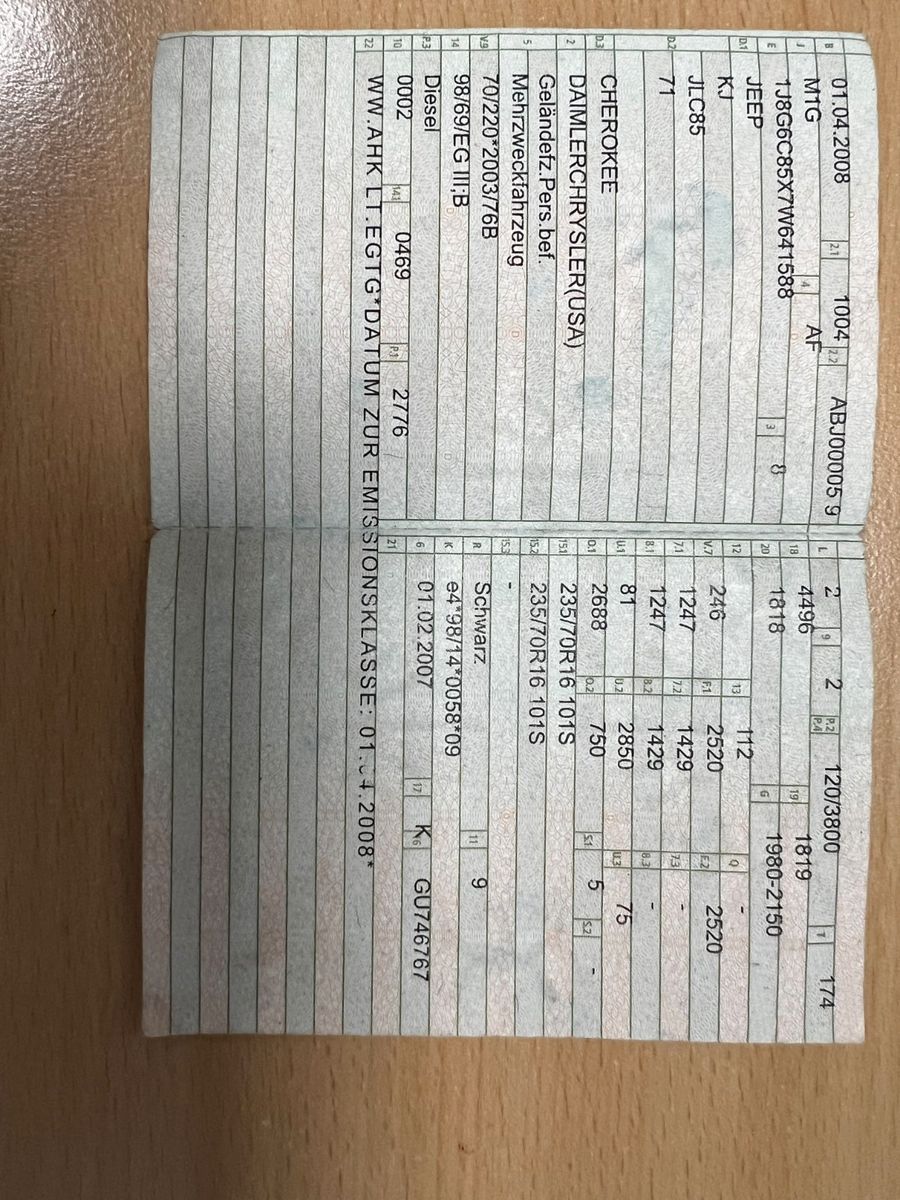 B 01.04.2008 2.1 1004 2.2 ABJ00005 9
J M1G 4 AF
E 1J8G6C85X7W641588 3 8
D.1 JEEP
KJ
D.2 JLC85
71
D.3 CHEROKEE
2 DAIMLERCHRYSLER(USA)
Geländefz.Pers.bef.
5 Mehrzweckfahrzeug
V.9 70/220*2003/76B
14 98/69/EG III;B
P.3 Diesel
10 0002 14.1 0469 P.1 2776
22 WW.AHK LT.EGTG*DATUM ZUR EMISSIONSKLASSE: 01.04.2008*
L 2 9 2 P.2 P.4 120/3800 T 174
18 4496 19 1819
20 1818 G 1980-2150
12 13 112 Q -
V.7 246 F.1 2520 F.2 2520
7.1 1247 7.2 1429 7.3 -
8.1 1247 8.2 1429 8.3 -
U.1 81 U.2 2850 U.3 75
O.1 2688 O.2 750 S.1 5 S.2 -
15.1 235/70R16 101S
15.2 235/70R16 101S
15.3 -
R Schwarz 11 9
K e4*98/14*0058*09
6 01.02.2007 17 K 16 GU746767
21